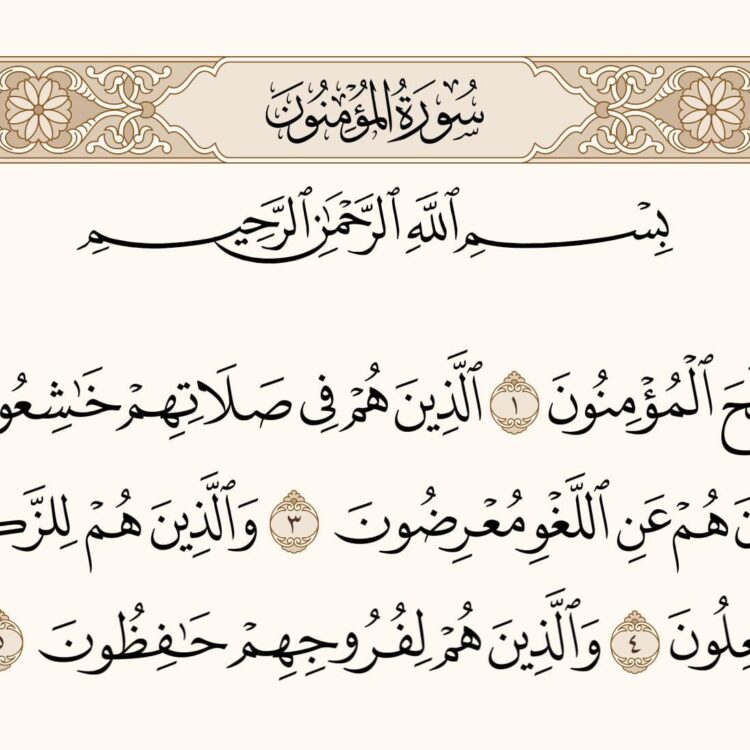 سُورَةُ المُؤْمِنُونَ
بِسْمِ ٱللَّهِ ٱلرَّحْمَٰنِ ٱلرَّحِيمِ
ٱلْمُؤْمِنُونَ ١ ٱلَّذِينَ هُمْ فِى صَلَاتِهِمْ
هُمْ عَنِ ٱللَّغْوِ مُعْرِضُونَ ٣ وَٱلَّذِينَ هُمْ
٤ وَٱلَّذِينَ هُمْ لِفُرُوجِهِمْ حَٰفِظُونَ ٥